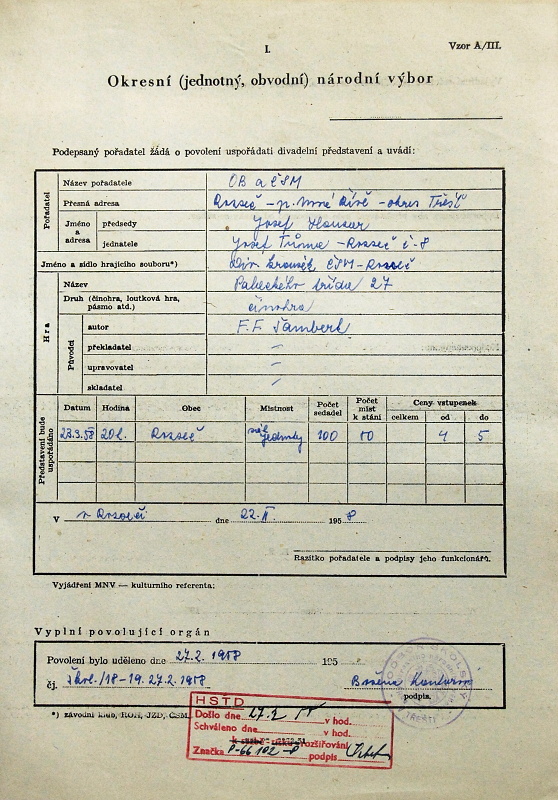 I.
Vzor A/III.
Okresní (jednotný, obvodní) národní výbor
Podepsaný pořadatel žádá o povolení uspořádati divadelní představení a uvádí:
Pořadatel
Název pořadatele OB a ČSM
Přesná adresa Rozseč - p. Mrákotín - okres Třešť
Jméno a adresa
předsedy Josef
jednatele Josef Tůma - Rozseč č. 8
Jméno a sídlo hrajícího souboru*) Div. kroužek ČSM - Rozseč
Hra
Název Palackého třída 27
Druh (činohra, loutková hra, pásmo atd.) činohra
Původci
autor F. F. Šamberk
překladatel -
upravovatel -
skladatel -
Představení bude uspořádáno
Datum Hodina Obec Místnost Počet sedadel Počet míst k stání Ceny vstupenek
celkem od do
23.3.58 20h. Rozseč sál Jednoty 100 50 4 5
V Rozseči dne 22. II. 195 8
Razítko pořadatele a podpisy jeho funkcionářů.
Vyjádření MNV — kulturního referenta:
Vyplní povolující orgán
Povolení bylo uděleno dne 27.2. 1958 195
čj. škol./18-19. 27.2. 1958
podpis.
*) závodní klub, ROH, JZD, ČSM.
HSTD
Došlo dne 27.2 58 v hod.
Schváleno dne v hod.
k sazbě - tisku - rozšiřování
Značka P-66 102 -P podpis